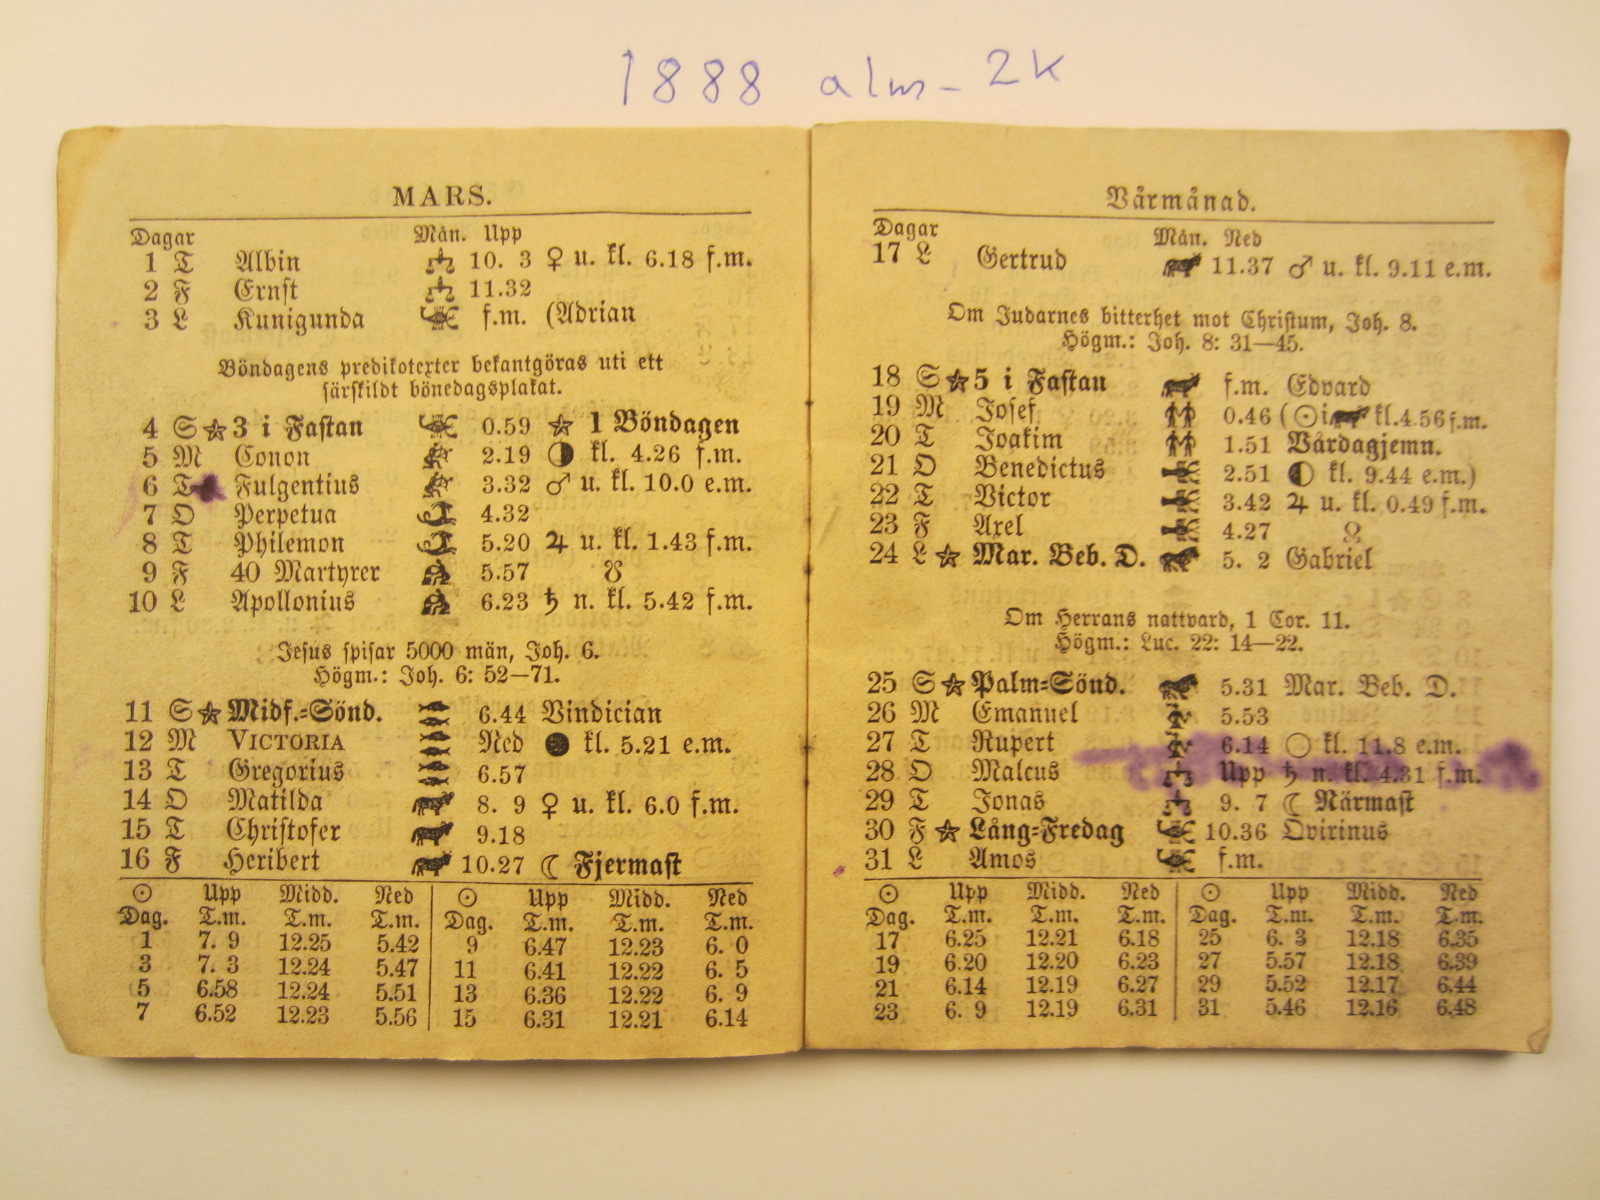 1888 alm- 2K
MARS.
Dagar Mån. Upp
1 T Albin 10. 3 ♀ u. kl. 6.18 f.m.
2 F Ernst 11.32
3 L Kunigunda f.m. (Adrian
Böndagens predikotexter bekantgöras uti ett
särskildt bönedagsplakat.
4 S ☆ 3 i Fastan 0.59 ☆ 1 Böndagen
5 M Conon 2.19 ◑ kl. 4.26 f.m.
6 T Fulgentius 3.32 ♂ u. kl. 10.0 e.m.
7 O Perpetua 4.32
8 T Philemon 5.20 ♃ u. kl. 1.43 f.m.
9 F 40 Martyrer 5.57 ☋
10 L Apollonius 6.23 ♄ n. kl. 5.42 f.m.
Jesus spisar 5000 män, Joh. 6.
Högm.: Joh. 6: 52—71.
11 S ☆ Midf.=Sönd. 6.44 Vindician
12 M VICTORIA Ned ● kl. 5.21 e.m.
13 T Gregorius 6.57
14 O Matilda 8. 9 ♀ u. kl. 6.0 f.m.
15 T Christofer 9.18
16 F Heribert 10.27 ☾ Fjermast
☉ Upp Midd. Ned ☉ Upp Midd. Ned
Dag. T.m. T.m. T.m. Dag. T.m. T.m. T.m.
1 7. 9 12.25 5.42 9 6.47 12.23 6. 0
3 7. 3 12.24 5.47 11 6.41 12.22 6. 5
5 6.58 12.24 5.51 13 6.36 12.22 6. 9
7 6.52 12.23 5.56 15 6.31 12.21 6.14
Vårmånad.
Dagar Mån. Ned
17 L Gertrud 11.37 ♂ u. kl. 9.11 e.m.
Om Judarnes bitterhet mot Christum, Joh. 8.
Högm.: Joh. 8: 31—45.
18 S ☆ 5 i Fastan f.m. Edvard
19 M Josef 0.46 (☉ i ♉ kl. 4.56 f.m.
20 T Joakim 1.51 Vårdagjemn.
21 O Benedictus 2.51 ◐ kl. 9.44 e.m.)
22 T Victor 3.42 ♃ u. kl. 0.49 f.m.
23 F Axel 4.27 ☊
24 L ☆ Mar. Beb. D. 5. 2 Gabriel
Om Herrans nattvard, 1 Cor. 11.
Högm.: Luc. 22: 14—22.
25 S ☆ Palm=Sönd. 5.31 Mar. Beb. D.
26 M Emanuel 5.53
27 T Rupert 6.14 ○ kl. 11.8 e.m.
28 O Malcus Upp ♄ n. kl. 4.31 f.m.
29 T Jonas 9. 7 ☾ Närmast
30 F ☆ Lång=Fredag 10.36 Qvirinus
31 L Amos f.m.
☉ Upp Midd. Ned ☉ Upp Midd. Ned
Dag. T.m. T.m. T.m. Dag. T.m. T.m. T.m.
17 6.25 12.21 6.18 25 6. 3 12.18 6.35
19 6.20 12.20 6.23 27 5.57 12.18 6.39
21 6.14 12.19 6.27 29 5.52 12.17 6.44
23 6. 9 12.19 6.31 31 5.46 12.16 6.48